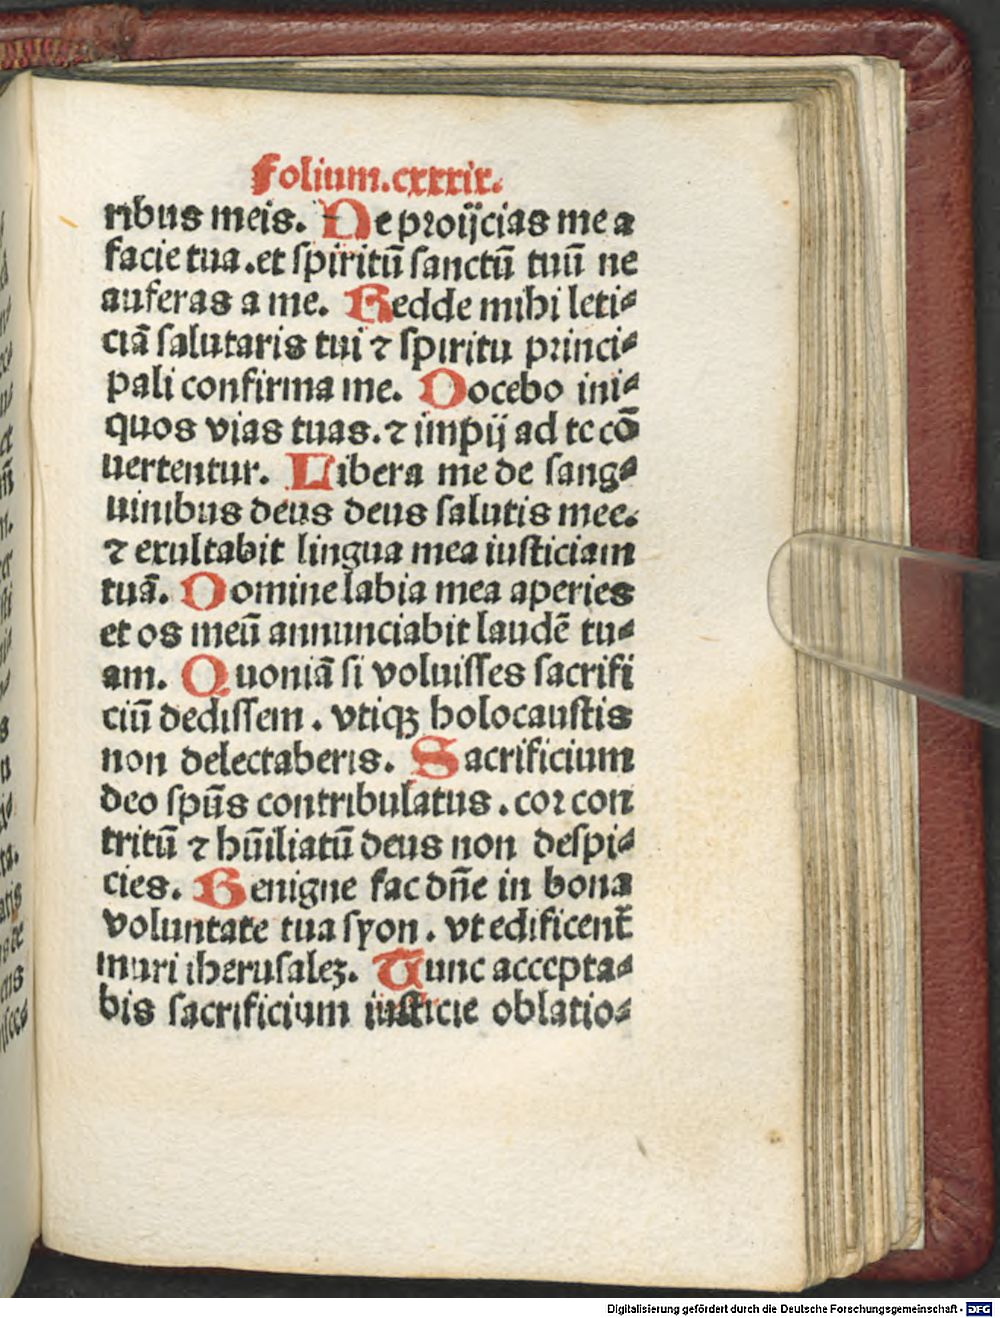 Folium.cxxxix.
ribus meis. Ne proijcias me a
facie tua.et spiritū sanctū tuū ne
auferas a me. Redde mihi leti⸗
ciā salutaris tui ⁊ spiritu princi⸗
pali confirma me. Docebo ini⸗
quos vias tuas.⁊ impij ad te cō
uertentur. Libera me de sang⸗
uinibus deus deus salutis mee.
⁊ exultabit lingua mea iusticiam
tuā. Domine labia mea aperies
et os meū annunciabit laudē tu⸗
am. Quoniā si voluisses sacrifi
ciū dedissem . vtiqꝫ holocaustis
non delectaberis. Sacrificium
deo spūs contribulatus . cor con
tritū ⁊ hūiliatū deus non despi⸗
cies. Benigne fac dn̄e in bona
voluntate tua syon . vt edificent̄
muri iherusaleꝫ. Tunc accepta⸗
bis sacrificium iusticie oblatio⸗
Digitalisierung gefördert durch die Deutsche Forschungsgemeinschaft - DFG